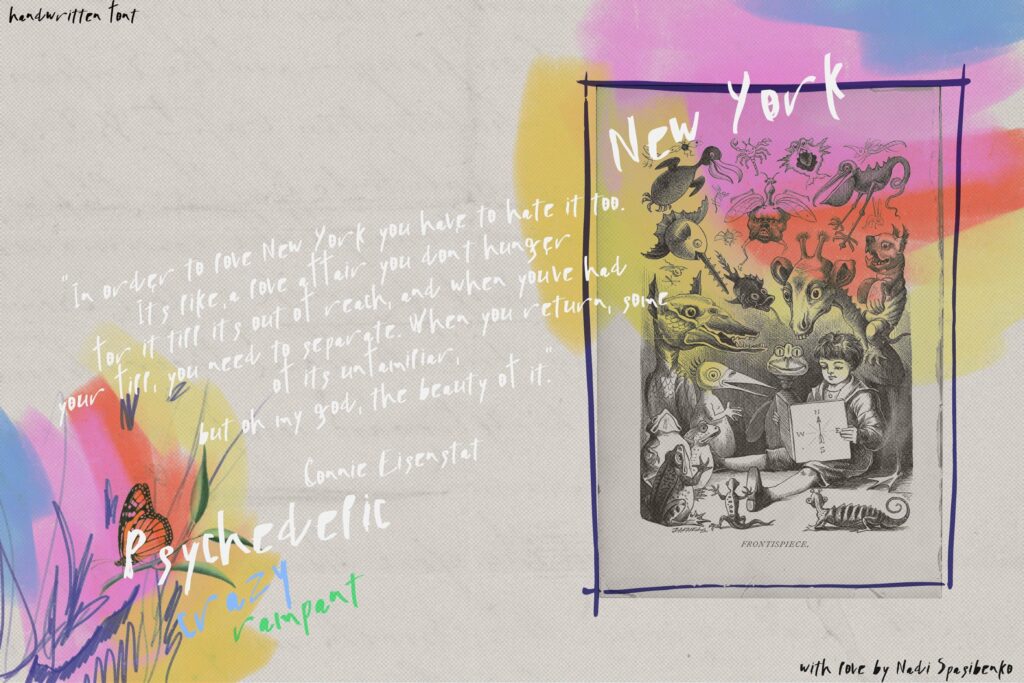 handwritten font
New York
"In order to love New York you have to hate it too.
It's like a love affair you dont hunger
for it till it's out of reach, and when you've had
your fill, you need to separate. When you return, some
of its unfamiliar,
but oh my god, the beauty of it."
Connie Eisenstat
Psychedelic
crazy
rampant
N
W
S
FRONTISPIECE.
with love by Nadi Spasibenko